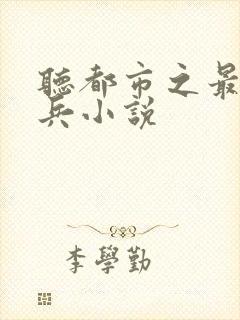 聽都市之最
兵小説
李學勤